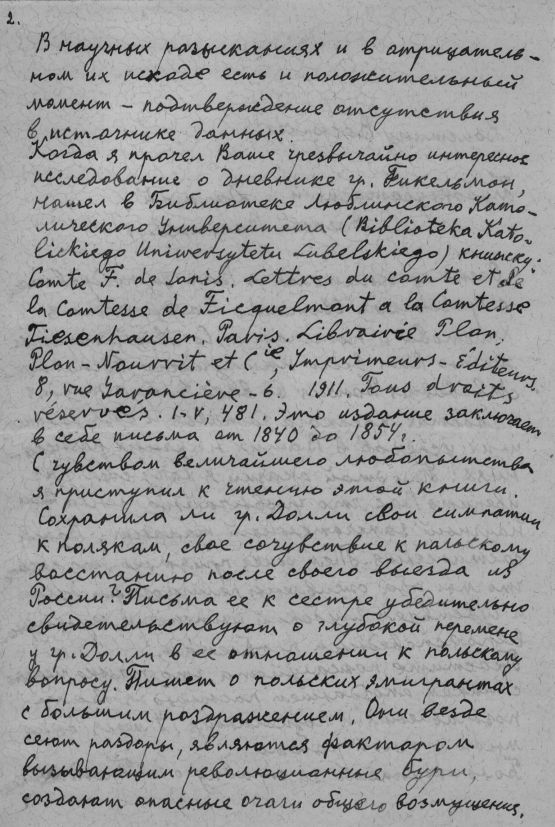 2.
В научных разысканиях и в отрицатель-
ном их исходе есть и положительный
момент – подтверждение отсутствия
в источнике данных.
Когда я прочел Ваше чрезвычайно интересное
исследование о дневнике гр. Фикельмон,
нашел в Библиотеке Люблинского Като-
лического Университета (Biblioteka Kato-
lickiego Uniwersytetu Lubelskiego) книжку:
Comte F. de Sonis. Lettres du comte et de
la Comtesse de Ficquelmont a la Comtesse
Tiesenhausen. Paris. Librairie Plon,
Plon-Nourrit et Cie, Imprimeurs-Editeurs.
8, rue Garancière-6. 1911. Tous droits
réservés. I-V, 481. Это издание заключает
в себе письма от 1840 до 1854 г.
С чувством величайшего любопытства
я приступил к чтению этой книги.
Сохранила ли гр. Долли свои симпатии
к полякам, свое сочувствие к польскому
восстанию после своего выезда из
России? Письма ее к сестре убедительно
свидетельствуют о глубокой перемене
у гр. Долли в ее отношении к польскому
вопросу. Пишет о польских эмигрантах
с большим раздражением. Они везде
сеют раздоры, являются фактором
вызывающим революционные бури,
создают опасные очаги общего возмущения.